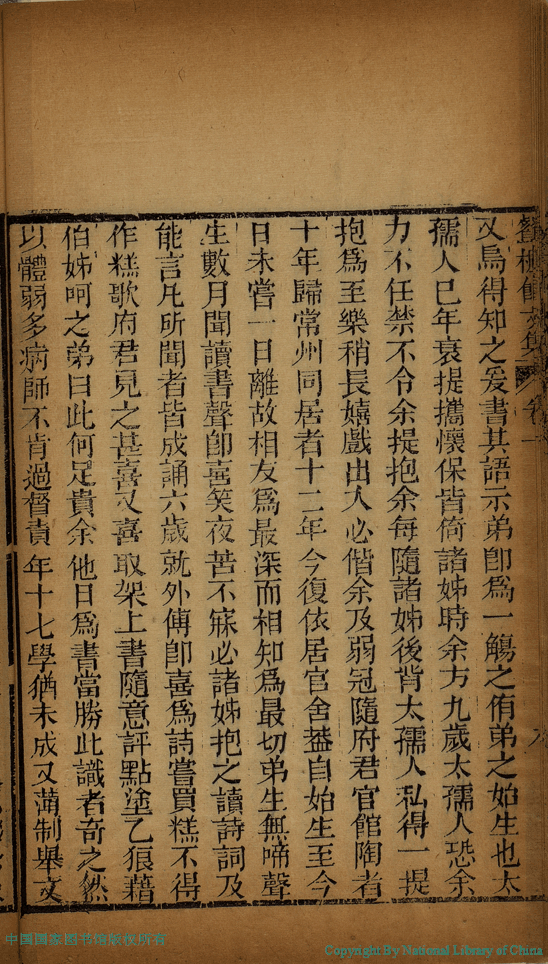 又烏得知之爰書其語示弟卽爲一觴之侑弟之始生也太
孺人巳年衰提攜懷保皆倚諸姊時余方九歲太孺人恐余
力不任禁不令余提抱余每隨諸姊後背太孺人私得一提
抱爲至樂稍長嬉戲出入必偕余及弱冠隨府君官館陶者
十年歸常州同居者十二年今復依居官舍葢自始生至今
日未嘗一日離故相友爲最深而相知爲最切弟生無啼聲
生數月聞讀書聲卽喜笑夜苦不寐必諸姊抱之讀詩詞及
能言凡所聞者皆成誦六歲就外傅卽喜爲詩嘗買糕不得
作糕歌府君見之甚喜又喜取架上書隨意評點塗乙狼藉
伯姊呵之弟曰此何足貴余他日爲書當勝此識者奇之然
以體弱多病師不肯過督責年十七學猶未成又薄制舉文
中国国家图书馆版权所有
Copyright By National Library of China